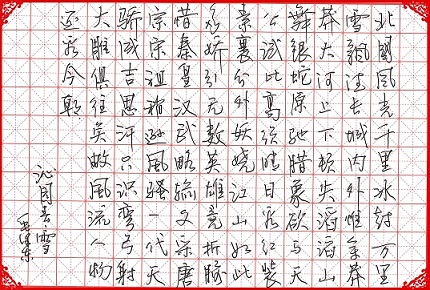 北国风光千里冰封万里
雪飘望长城内外惟余莽
莽大河上下顿失滔滔山
舞银蛇原驰腊象欲与天
公试比高须晴日看红装
素裹分外妖娆江山如此
多娇引无数英雄竞折腰
惜秦皇汉武略输文采唐
宗宋祖稍逊风骚一代天
骄成吉思汗只识弯弓射
大雕俱往矣数风流人物
还看今朝
沁园春雪
毛泽东